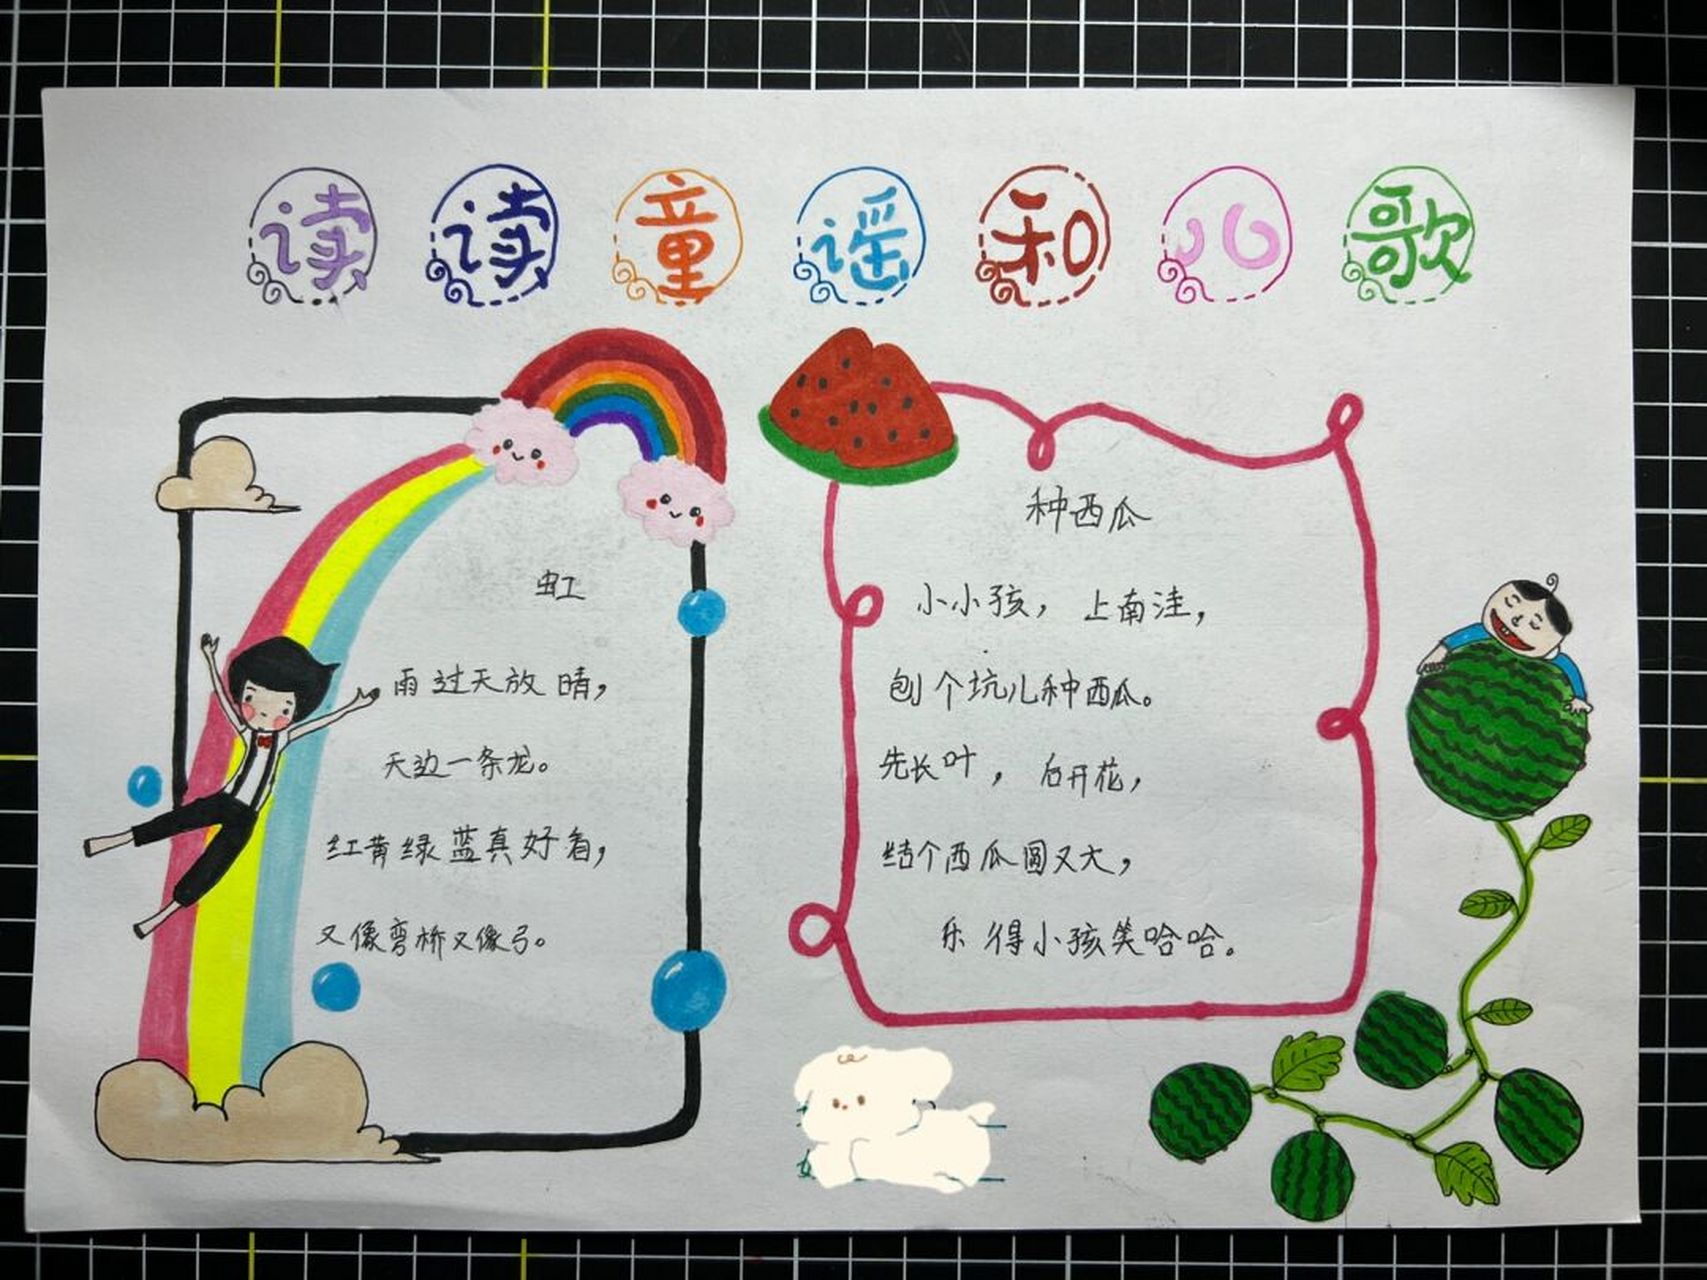 读读童谣和儿歌
虹
雨过天放晴，
天边一条龙。
红黄绿蓝真好看，
又像弯桥又像弓。
种西瓜
小小孩，上南洼，
刨个坑儿种西瓜。
先长叶，后开花，
结个西瓜圆又大，
乐得小孩笑哈哈。